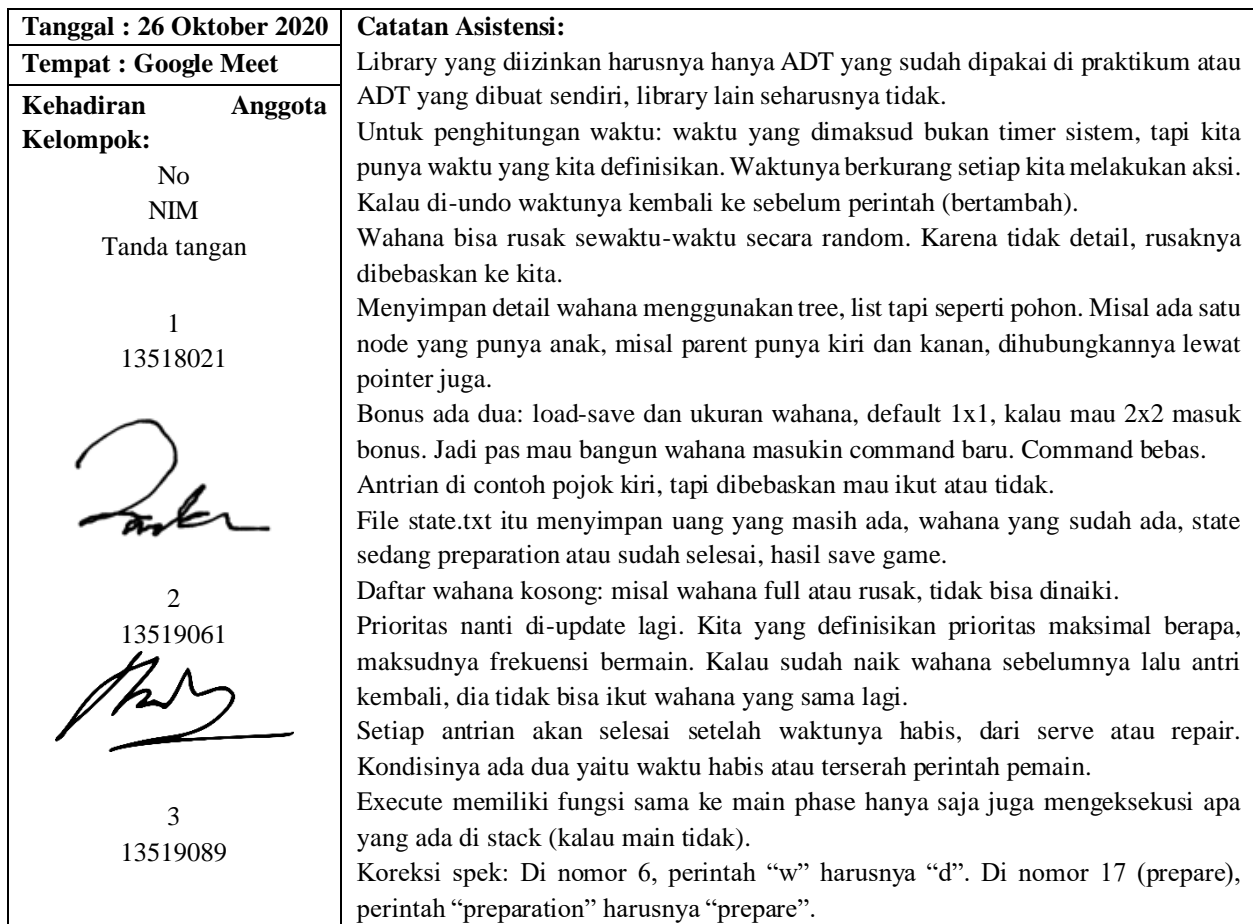 Tanggal : 26 Oktober 2020
Tempat : Google Meet
Kehadiran Anggota
Kelompok:
No
NIM
Tanda tangan
1
13518021
2
13519061
3
13519089
Catatan Asistensi:
Library yang diizinkan harusnya hanya ADT yang sudah dipakai di praktikum atau
ADT yang dibuat sendiri, library lain seharusnya tidak.
Untuk penghitungan waktu: waktu yang dimaksud bukan timer sistem, tapi kita
punya waktu yang kita definisikan. Waktunya berkurang setiap kita melakukan aksi.
Kalau di-undo waktunya kembali ke sebelum perintah (bertambah).
Wahana bisa rusak sewaktu-waktu secara random. Karena tidak detail, rusaknya
dibebaskan ke kita.
Menyimpan detail wahana menggunakan tree, list tapi seperti pohon. Misal ada satu
node yang punya anak, misal parent punya kiri dan kanan, dihubungkannya lewat
pointer juga.
Bonus ada dua: load-save dan ukuran wahana, default 1x1, kalau mau 2x2 masuk
bonus. Jadi pas mau bangun wahana masukin command baru. Command bebas.
Antrian di contoh pojok kiri, tapi dibebaskan mau ikut atau tidak.
File state.txt itu menyimpan uang yang masih ada, wahana yang sudah ada, state
sedang preparation atau sudah selesai, hasil save game.
Daftar wahana kosong: misal wahana full atau rusak, tidak bisa dinaiki.
Prioritas nanti di-update lagi. Kita yang definisikan prioritas maksimal berapa,
maksudnya frekuensi bermain. Kalau sudah naik wahana sebelumnya lalu antri
kembali, dia tidak bisa ikut wahana yang sama lagi.
Setiap antrian akan selesai setelah waktunya habis, dari serve atau repair.
Kondisinya ada dua yaitu waktu habis atau terserah perintah pemain.
Execute memiliki fungsi sama ke main phase hanya saja juga mengeksekusi apa
yang ada di stack (kalau main tidak).
Koreksi spek: Di nomor 6, perintah “w” harusnya “d”. Di nomor 17 (prepare),
perintah “preparation” harusnya “prepare”.